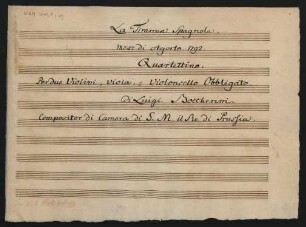 La Tiranna Spagnola.
Mese di Agosto. 1792.
Quartettino.
Per due Violini, Viola, e Violoncello Obbligato
Di Luigi Boccherini.
Compositor di Camera di S. M. il Re di Prussia.